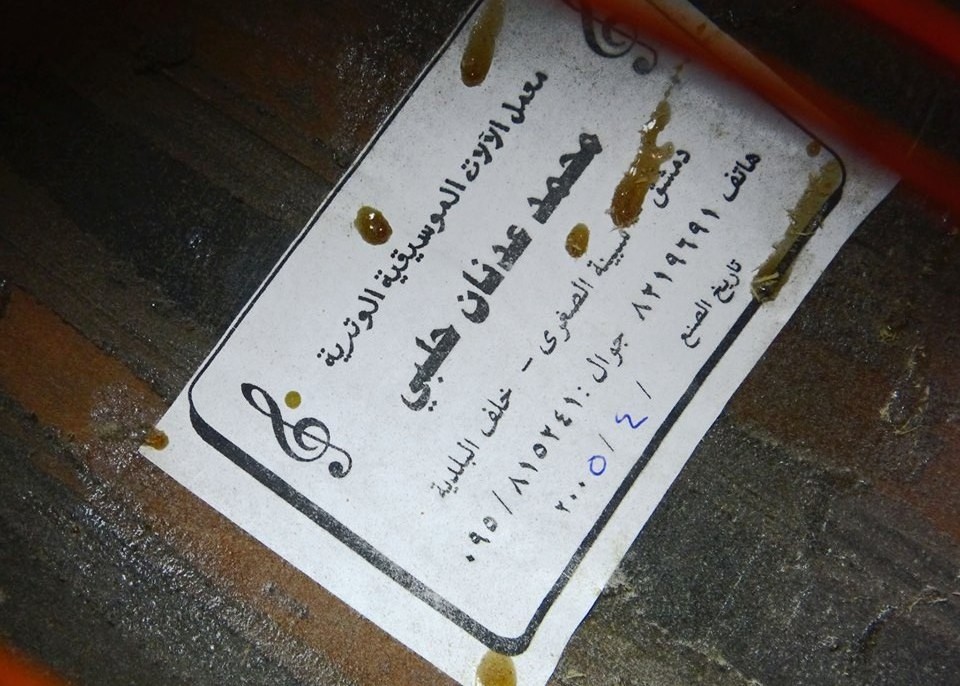 معمل الآلات الموسيقية الوترية
محمد عدنان حلبي
دمشق سبينة الصغرى - خلف البلدية
هاتف ٨٢١٩٦٩١ جوال : ٠٩٥ / ٨١٥٢٤١
تاريخ الصنع / ٤ / ٢٠٠٥